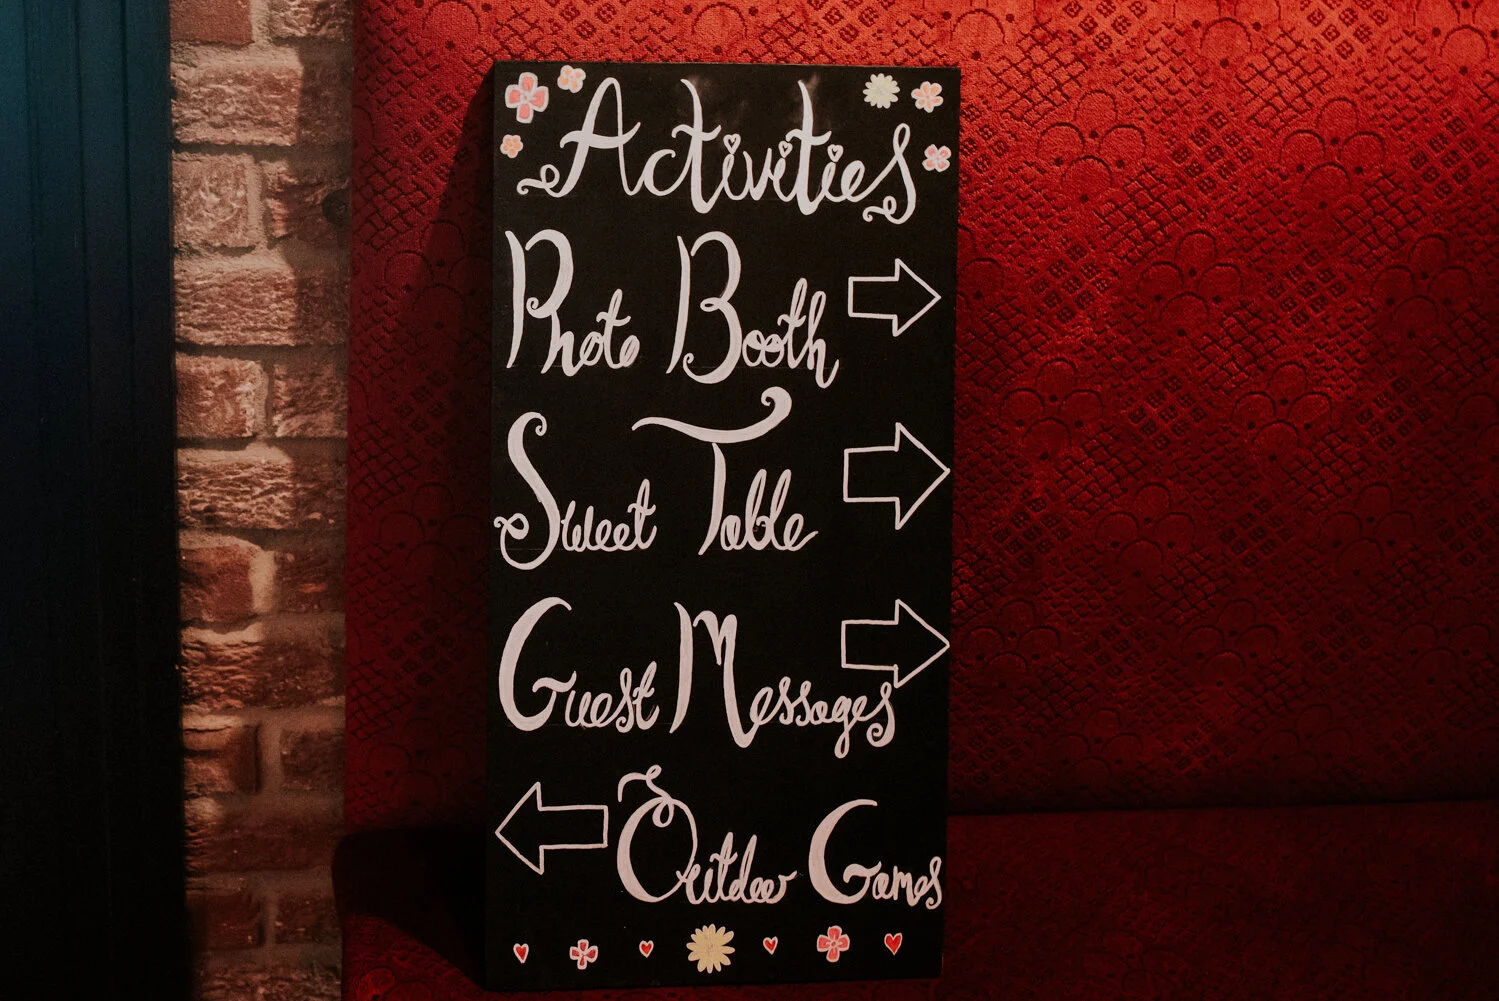 Activities
Photo Booth
Sweet Table
Guest Messages
Outdoor Games